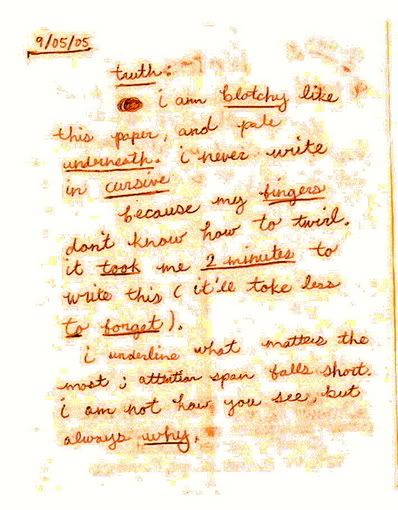 9/05/05
truth:
i am blotchy like
this paper, and pale
underneath. i never write
in cursive
because my fingers
don't know how to twirl.
it took me 2 minutes to
write this (it'll take less
to forget).
i underline what matters the
most; attention span falls short.
i am not how you see, but
always why.